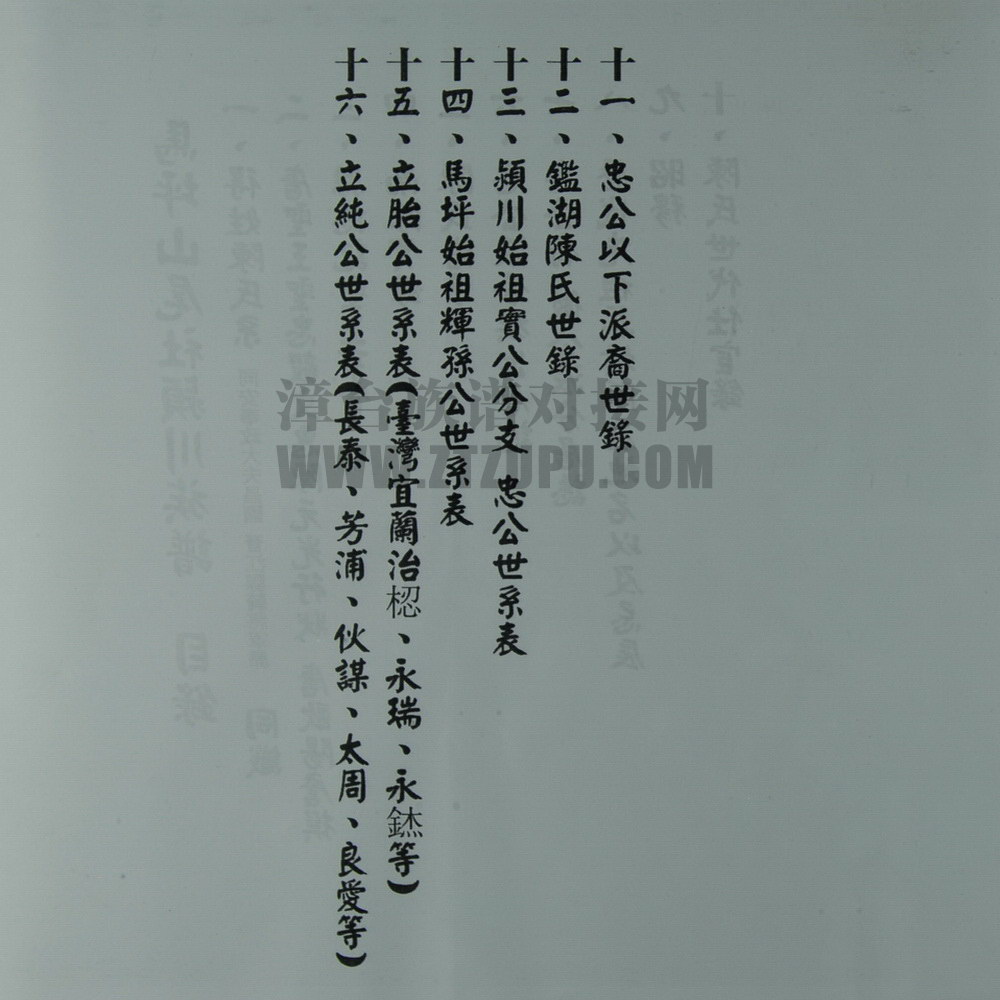 十一、忠公以下派裔世錄
十二、鑑湖陳氏世錄
十三、潁川始祖實公分支 忠公世系表
十四、馬坪始祖輝孫公世系表
十五、立胎公世系表(臺灣宜蘭治樬、永瑞、永𨧱等)
十六、立純公世系表(長泰、芳浦、伙謀、太周、良愛等)
漳台族谱对接网
WWW.ZTZUPU.COM